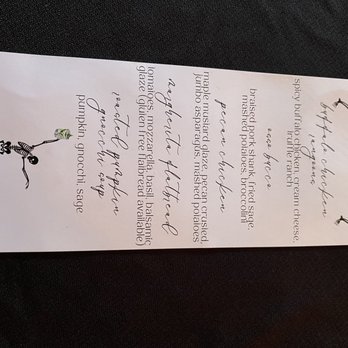 buffalo chicken
lasagna
spicy buffalo chicken, cream cheese,
truffle ranch
osso bucco
braised pork shank, fried sage,
mashed potatoes, broccolini
pecan chicken
maple mustard glaze, pecan crusted,
jumbo asparagus, mashed potatoes
margherita flatbread
tomatoes, mozzarella, basil, balsamic
glaze (gluten free flatbread available)
roasted pumpkin
gnocchi soup
pumpkin, gnocchi, sage